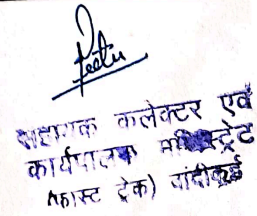 Reetu
सहायक कलेक्टर एवं
कार्यपालक मजिस्ट्रेट
(फास्ट ट्रेक) बांदीकुई